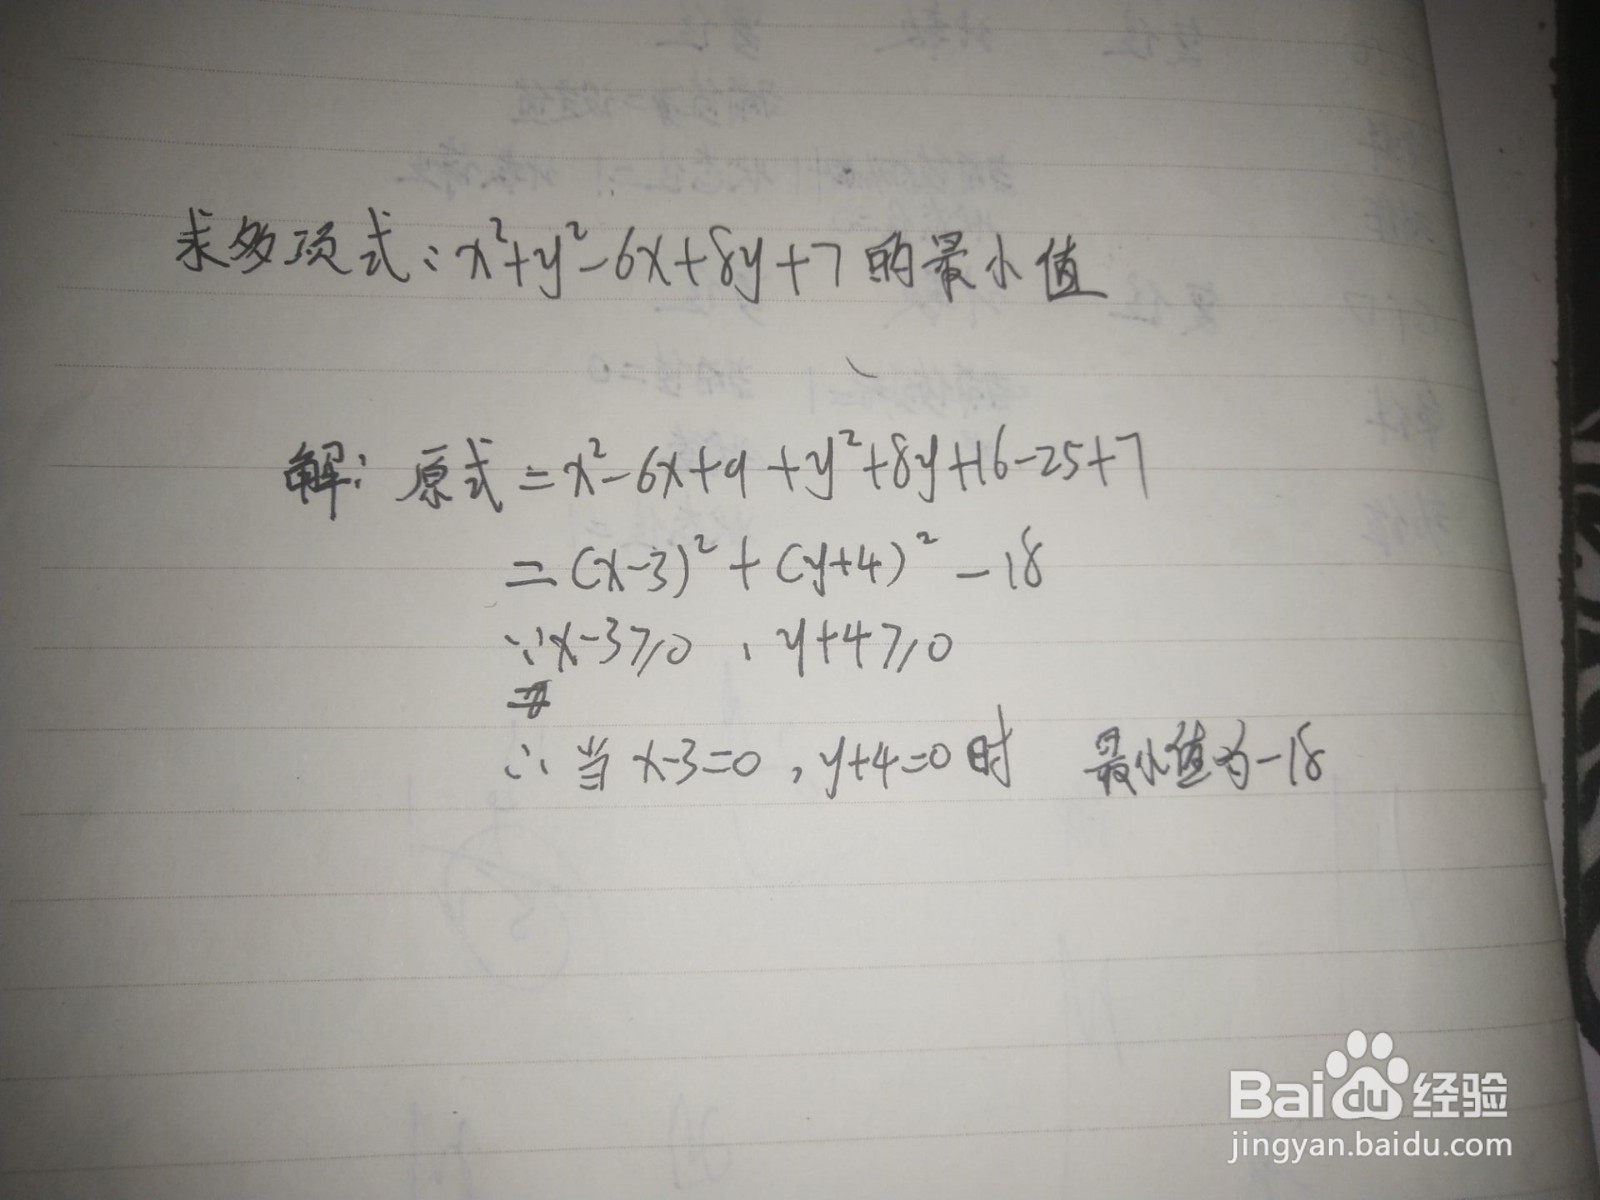 求多项式：x²+y²-6x+8y+7的最小值
解：原式=x²-6x+9+y²+8y+16-25+7
=(x-3)²+(y+4)²-18
∵x-3≥0，y+4≥0
∴当x-3=0，y+4=0时 最小值为-18
Baidu经验
jingyan.baidu.com